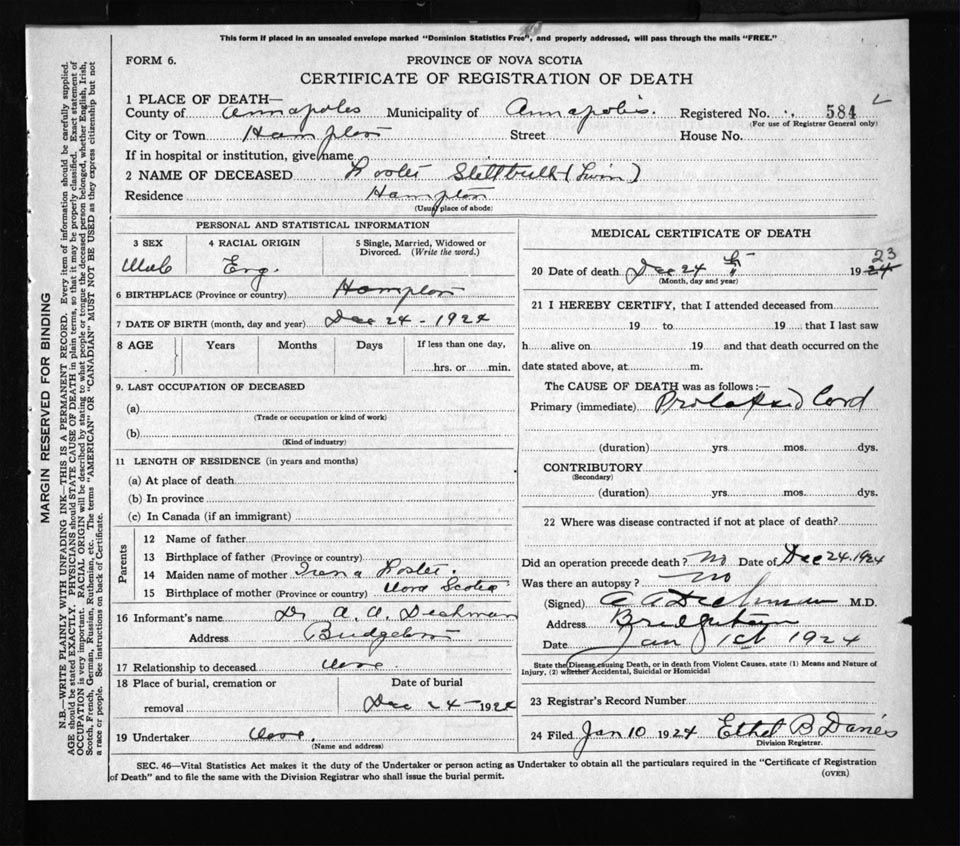 This form if placed in an unsealed envelope marked "Dominion Statistics Free", and properly addressed, will pass through the mails "FREE."
FORM 6.
PROVINCE OF NOVA SCOTIA
CERTIFICATE OF REGISTRATION OF DEATH
1 PLACE OF DEATH—
County of Annapolis Municipality of Annapolis. Registered No. 584
(For use of Registrar General only)
City or Town Hampton Street House No.
If in hospital or institution, give name
2 NAME OF DECEASED Foster Stillbirth (Twin)
Residence Hampton
(Usual place of abode)
PERSONAL AND STATISTICAL INFORMATION
3 SEX
Male
4 RACIAL ORIGIN
Eng.
5 Single, Married, Widowed or Divorced. (Write the word.)
6 BIRTHPLACE (Province or country) Hampton
7 DATE OF BIRTH (month, day and year) Dec 24 - 1924
8 AGE Years Months Days If less than one day,
hrs. or min.
9. LAST OCCUPATION OF DECEASED
(a)
(Trade or occupation or kind of work)
(b)
(Kind of industry)
11 LENGTH OF RESIDENCE (in years and months)
(a) At place of death
(b) In province
(c) In Canada (if an immigrant)
Parents
12 Name of father
13 Birthplace of father (Province or country)
14 Maiden name of mother Irena Foster.
15 Birthplace of mother (Province or country) Nova Scotia
16 Informant's name Dr. A. A. Dechman
Address Bridgetown
17 Relationship to deceased None.
18 Place of burial, cremation or
removal
Date of burial
Dec 24 - 1924
19 Undertaker None.
(Name and address)
MEDICAL CERTIFICATE OF DEATH
20 Date of death Dec 24 th 1924 23
(Month, day and year)
21 I HEREBY CERTIFY, that I attended deceased from
19 to 19 that I last saw
h alive on 19 and that death occurred on the
date stated above, at m.
The CAUSE OF DEATH was as follows:—
Primary (immediate) Prolapsed Cord
(duration) yrs. mos. dys.
CONTRIBUTORY
(Secondary)
(duration) yrs. mos. dys.
22 Where was disease contracted if not at place of death?
Did an operation precede death? No Date of Dec 24. 1924
Was there an autopsy? No
(Signed) A A Dechman M.D.
Address Bridgetown
Date Jan 1st 1924
State the Disease causing Death, or in death from Violent Causes, state (1) Means and Nature of Injury, (2) whether Accidental, Suicidal or Homicidal
23 Registrar's Record Number
24 Filed Jan 10 1924 Ethel B Daniels
Division Registrar.
SEC. 46—Vital Statistics Act makes it the duty of the Undertaker or person acting as Undertaker to obtain all the particulars required in the "Certificate of Registration
of Death" and to file the same with the Division Registrar who shall issue the burial permit.
(OVER)
MARGIN RESERVED FOR BINDING
N.B.—WRITE PLAINLY WITH UNFADING INK—THIS IS A PERMANENT RECORD. Every item of information should be carefully supplied.
AGE should be stated EXACTLY. PHYSICIANS should STATE CAUSE OF DEATH in plain terms, so that it may be properly classified. Exact statement of
OCCUPATION is very important. RACIAL ORIGIN will be described by stating to what people or tongue the deceased person belonged, whether English, Irish,
Scotch, French, German, Russian, Ruthenian, etc. The terms "AMERICAN" OR "CANADIAN" MUST NOT BE USED as they express citizenship but not
a race or people. See instructions on back of Certificate.